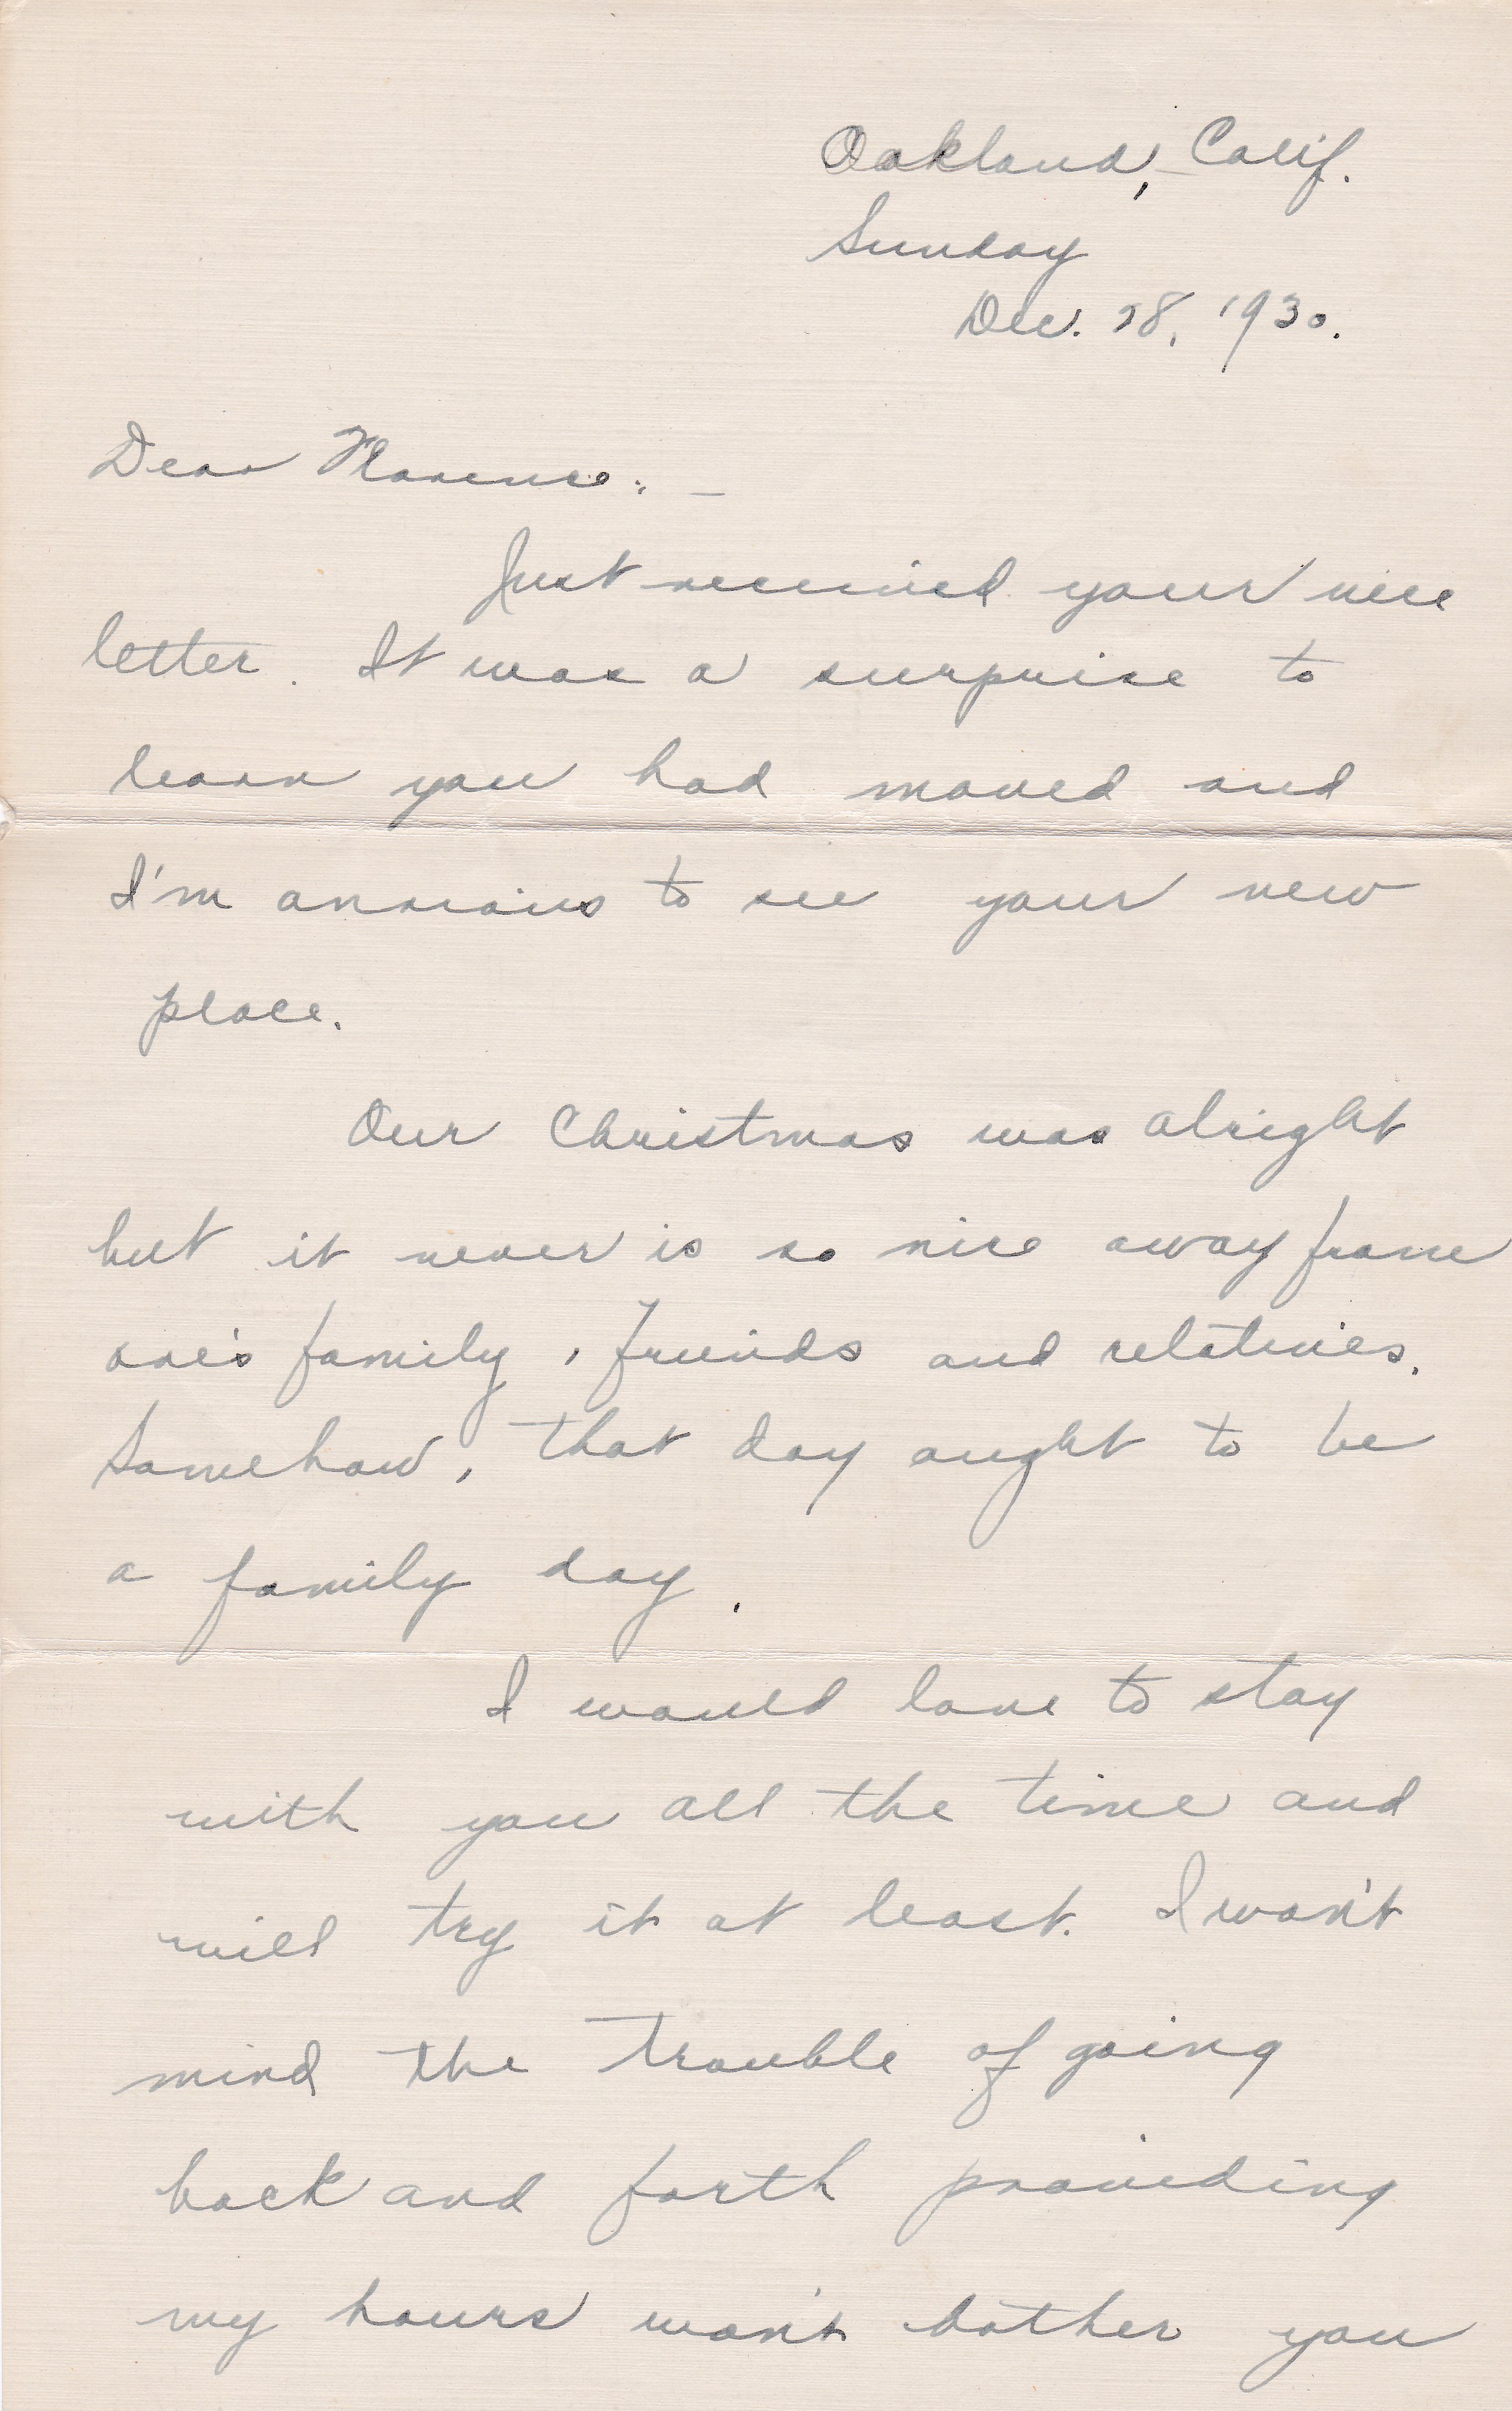 Oakland, Calif.
Sunday
Dec. 28, 1930.
Dear Florence: –
Just received your nice
letter. It was a surprise to
learn you had moved and
I'm anxious to see your new
place.
Our Christmas was alright
but it never is so nice away from
one's family, friends and relatives.
Somehow, that day ought to be
a family day.
I would love to stay
with you all the time and
will try it at least. I won't
mind the trouble of going
back and forth providing
my hours won't bother you